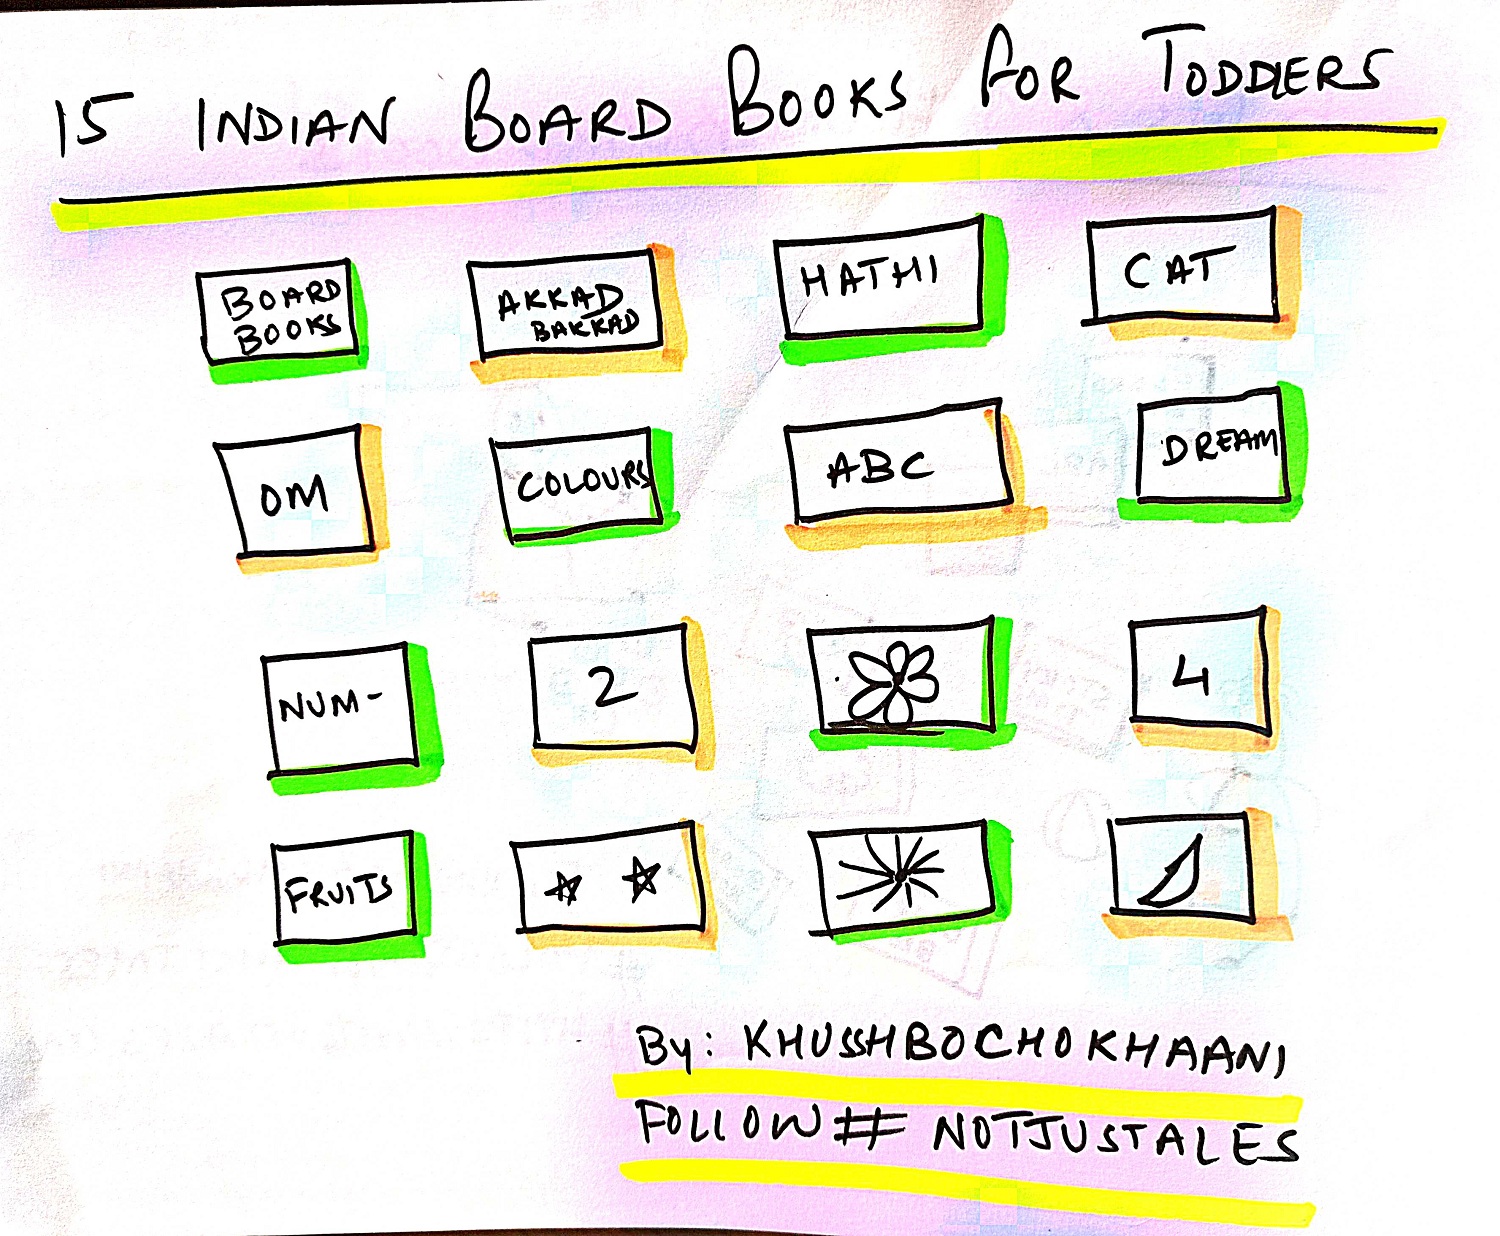 15 INDIAN BOARD BOOKS FOR TODDLERS
BOARD
BOOKS
AKKAD
BAKKAD
HATHI
CAT
OM
COLOURS
ABC
DREAM
NUM-
2
4
FRUITS
By: KHUSSHBOCHOKHAANI
FOLLOW # NOTJUSTALES